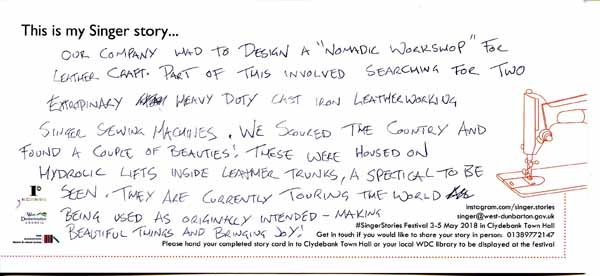 This is my Singer story...
OUR COMPANY HAD TO DESIGN A "NOMADIC WORKSHOP" FOR
LEATHER CRAFT. PART OF THIS INVOLVED SEARCHING FOR TWO
EXTROPINARY HEAVY DUTY CAST IRON LEATHERWORKING
SINGER SEWING MACHINES. WE SCOURED THE COUNTRY AND
FOUND A COUPLE OF BEAUTIES! THESE WERE HOUSED ON
HYDROLIC LIFTS INSIDE LEATHER TRUNKS, A SPECTICAL TO BE
SEEN. THEY ARE CURRENTLY TOURING THE WORLD
BEING USED AS ORIGINALLY INTENDED - MAKING
BEAUTIFUL THINGS AND BRINGING JOY!
instagram.com/singer.stories
singer@west-dunbarton.gov.uk
#SingerStories Festival 3-5 May 2018 in Clydebank Town Hall
Get in touch if you would like to share your story in person: 01389772147
Please hand your completed story card in to Clydebank Town Hall or your local WDC library to be displayed at the festival